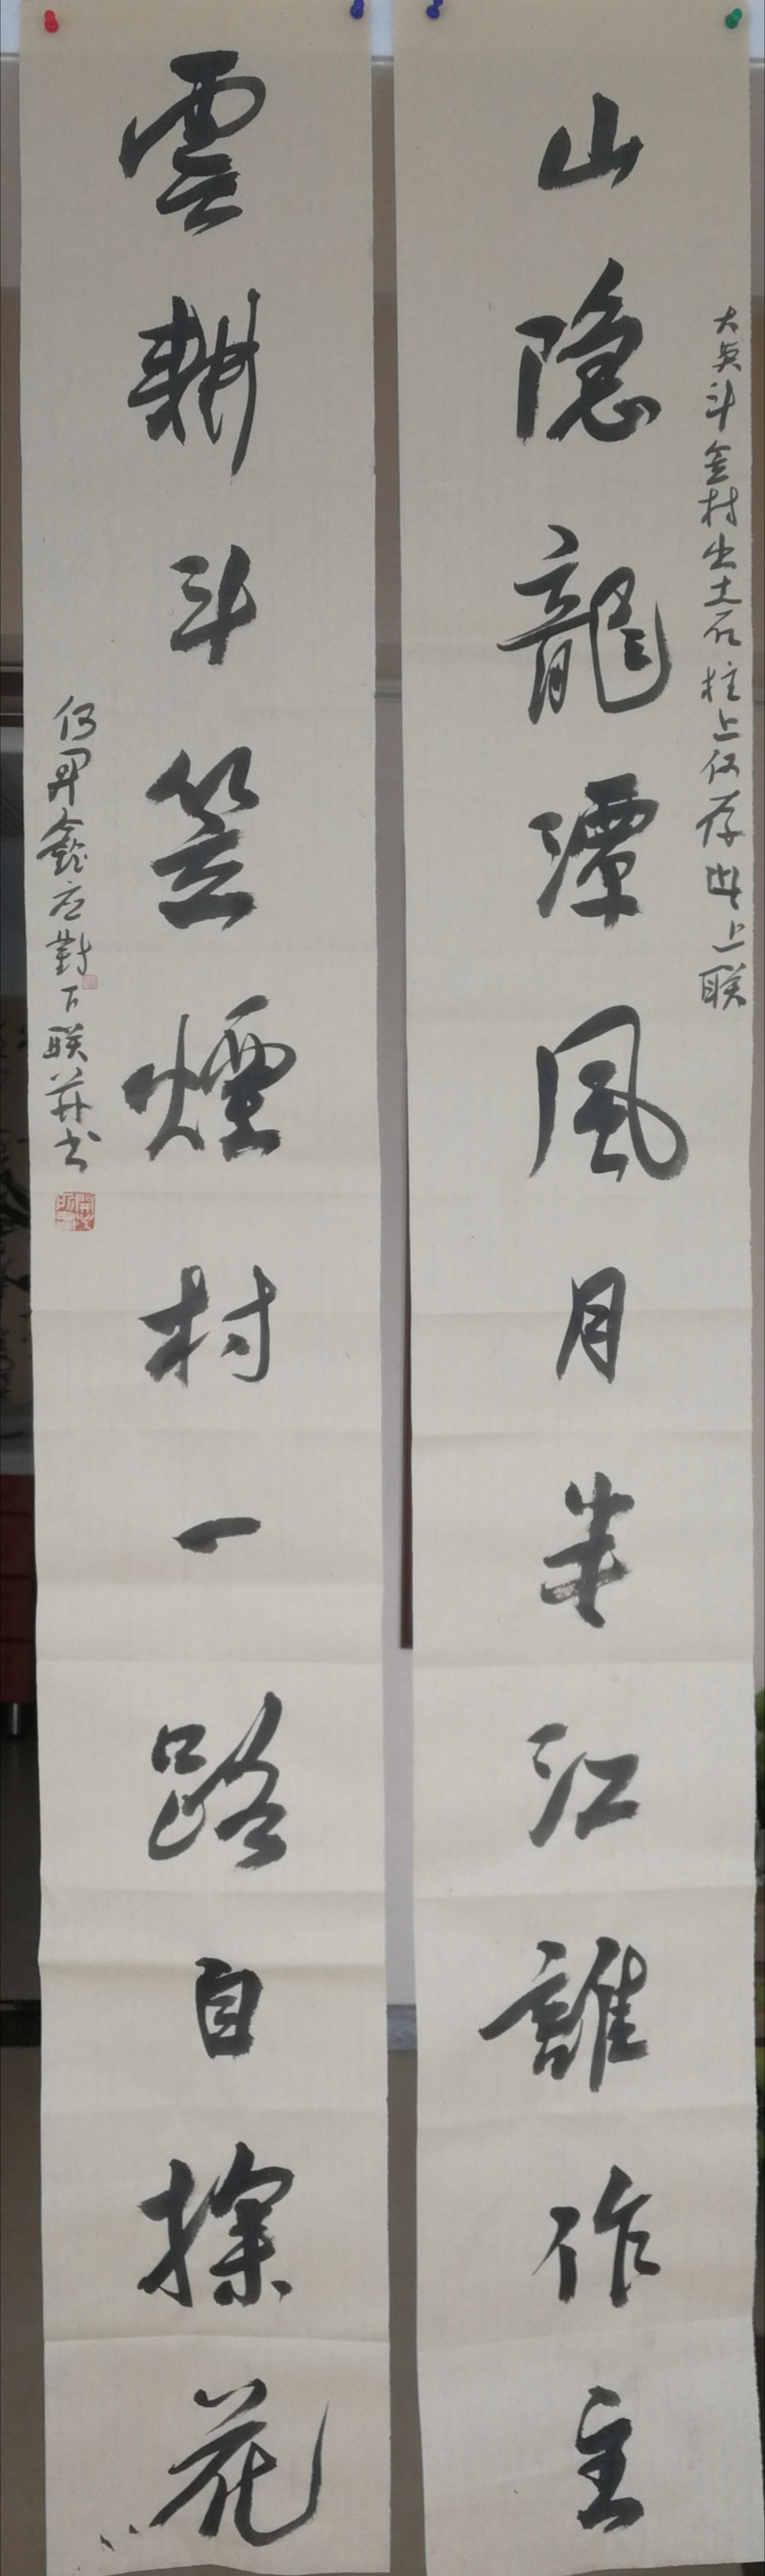 大英斗金村出土石柱上仅存此上联
山隐龍潭風月半江誰作主
雲耕斗笠煙村一路自探花
應對下联并书